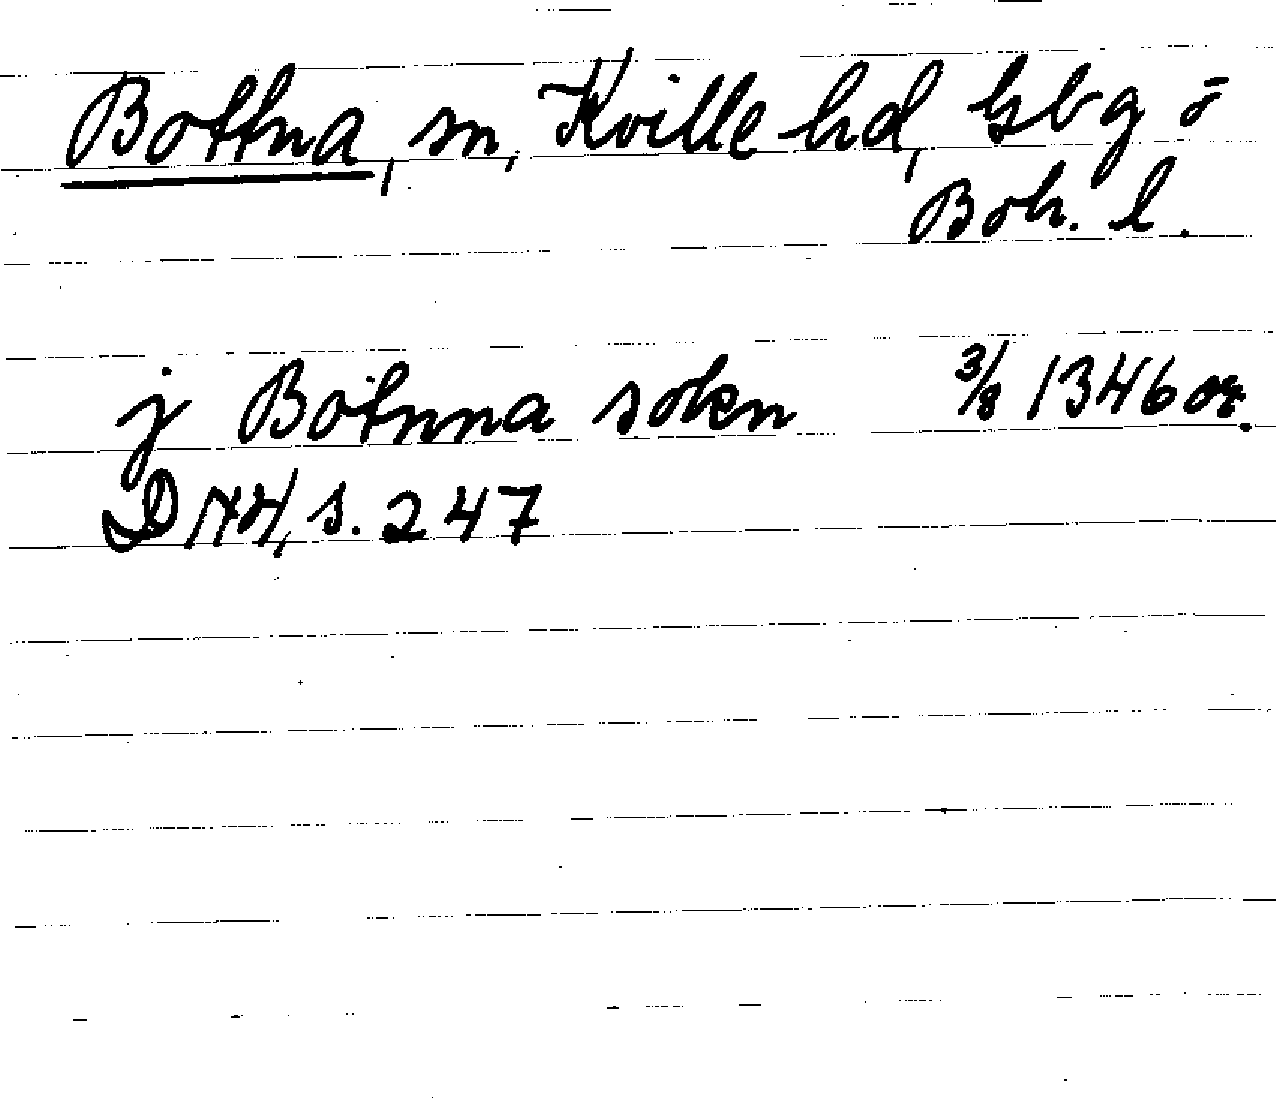 Bottna, sn, Kville hd, Gbg o
Boh. l.
j Botnna sokn 3/8 1346 or.
DN 4, s. 247